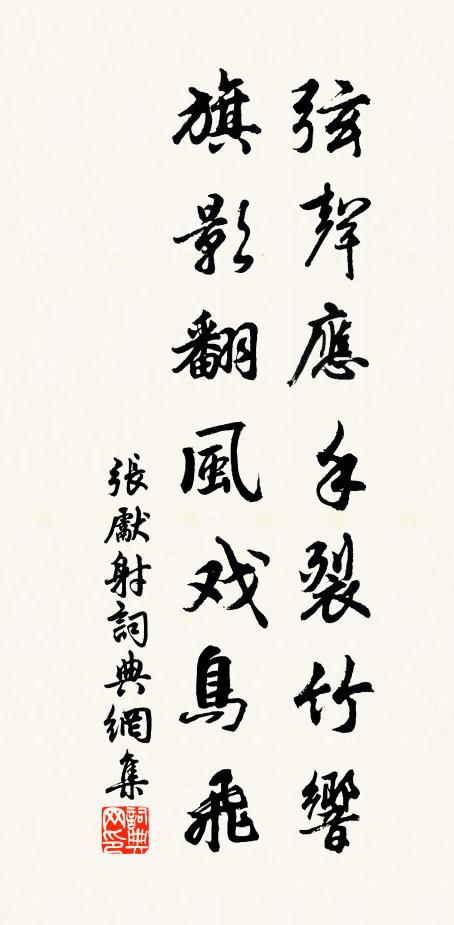 弦聲應手裂竹響
旗影翻風戏鳥飛
張獻射詞典網集
詞典网印